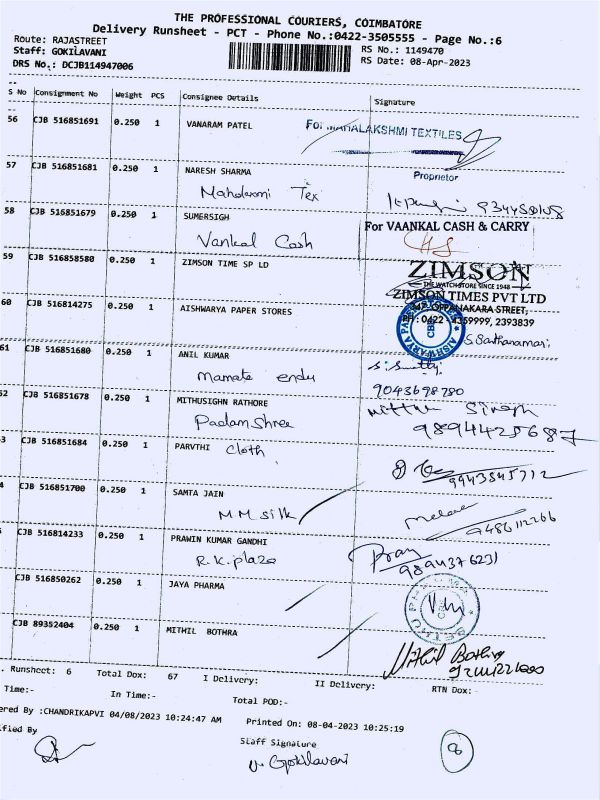 THE PROFESSIONAL COURIERS, COIMBATORE
Delivery Runsheet - PCT - Phone No.:0422-3505555 - Page No.:6
Route: RAJASTREET
RS No.: 1149470
Staff: GOKILAVANI
RS Date: 08-Apr-2023
DRS No.: DCJB114947006
S No Consignment No Weight PCS Consignee Details Signature
56 CJB 516851691 0.250 1 VANARAM PATEL For MAHALAKSHMI TEXTILES
Proprietor
57 CJB 516851681 0.250 1 NARESH SHARMA
Mahalaxmi Tex
58 CJB 516851679 0.250 1 SUMERSIGH For VAANKAL CASH & CARRY
Vankal Cash
59 CJB 516858580 0.250 1 ZIMSON TIME SP LD ZIMSON
THE WATCHSTORE SINCE 1948
ZIMSON TIMES PVT LTD
OPPANAKARA STREET,
PH : 0422 - 4359999, 2393839
60 CJB 516814275 0.250 1 AISHWARYA PAPER STORES
AISHWARYA PAPER
CBE
61 CJB 516851680 0.250 1 ANIL KUMAR
mamate endu
9043698780
52 CJB 516851678 0.250 1 MITHUSIGHN RATHORE Mitthu Singh
Padam Shree 9894425687
3 CJB 516851684 0.250 1 PARVTHI Cloth
9943845712
4 CJB 516851700 0.250 1 SAMTA JAIN
M M Silk 9486112266
5 CJB 516814233 0.250 1 PRAWIN KUMAR GANDHI
R.K. plaza 9894376231
CJB 516850262 0.250 1 JAYA PHARMA
CJB 89352404 0.250 1 MITHIL BOTHRA Mithil Bothra
. Runsheet: 6 Total Dox: 67 I Delivery: II Delivery: RTN Dox:-
Time:- In Time:- Total POD:-
ered By :CHANDRIKAPVI 04/08/2023 10:24:47 AM Printed On: 08-04-2023 10:25:19
ified By Staff Signature
V. Gokilavani
8